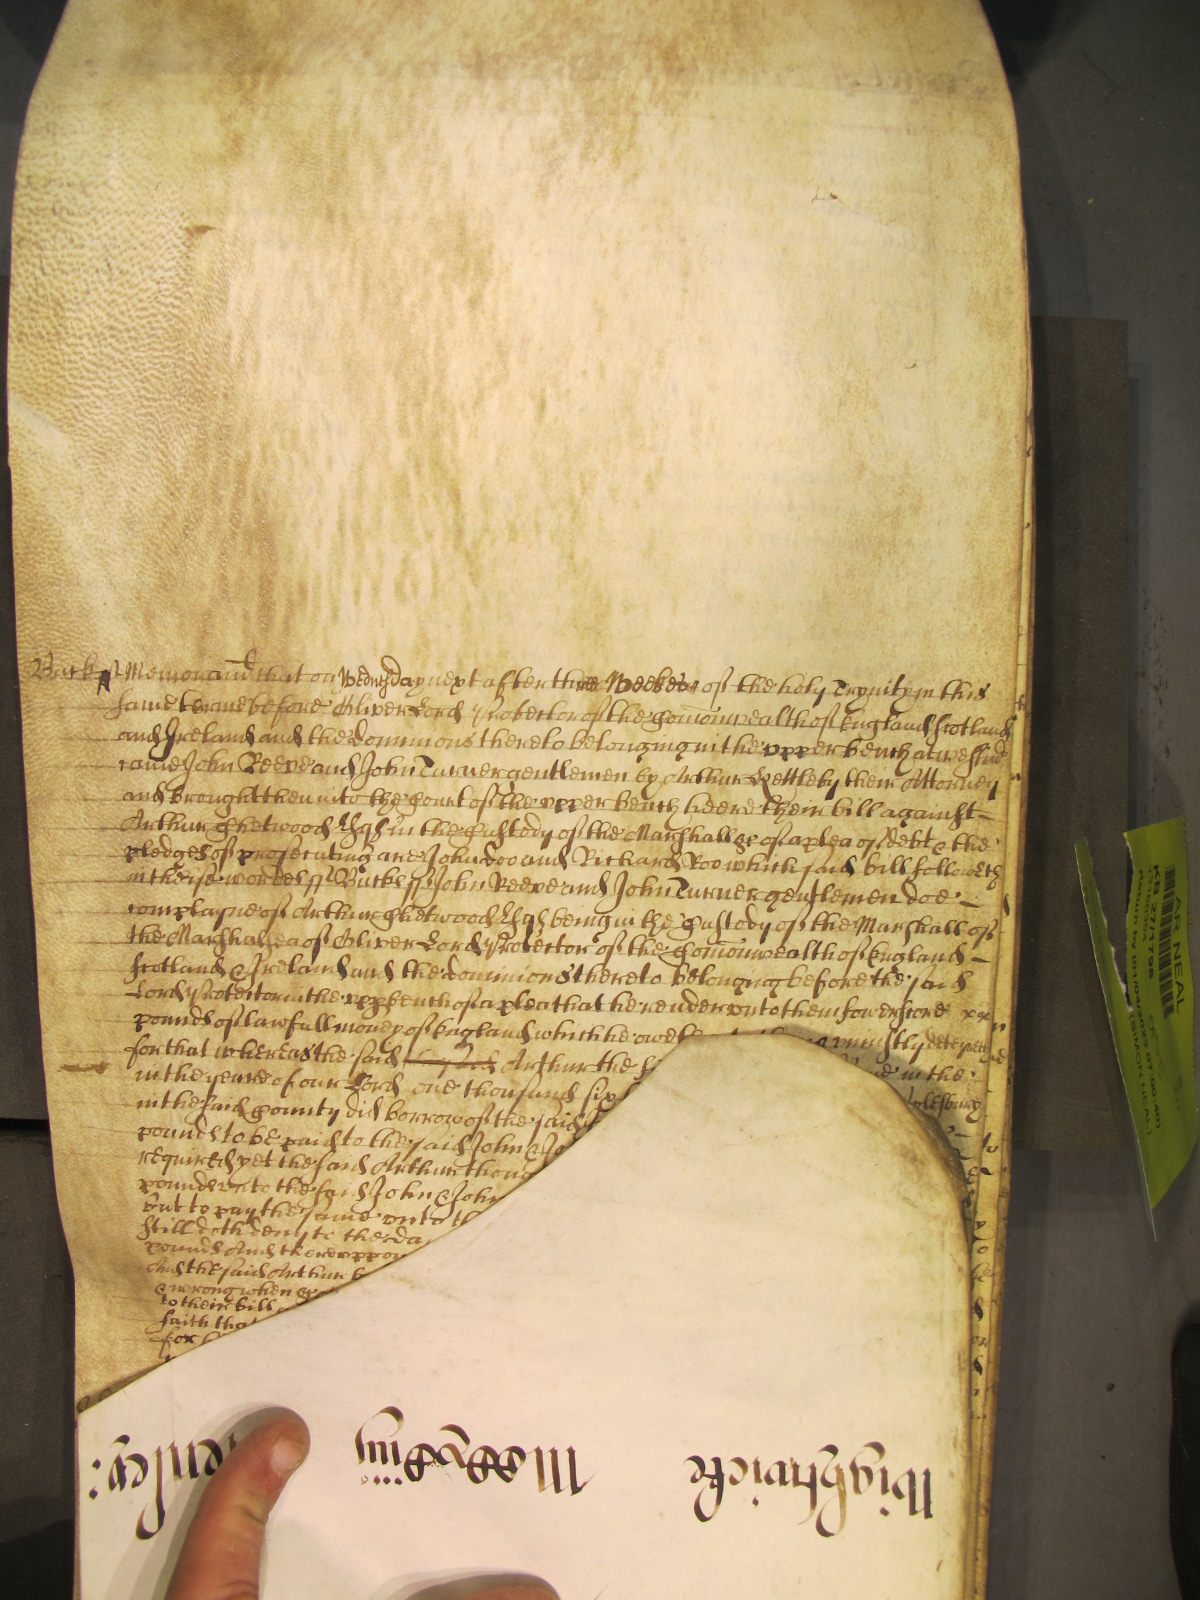 Bucks ss Memorand that on Wednesday next after three Weekes of the holy Trynity in this
same terme before Oliver Lord Protector of the Comonwealth of England Scotland
and Ireland and the dominions thereto belonging in the upper bench at westm
came John Reeve and John Turner gentlemen by Arthur Kettleby their Attorney
and brought then into the Court of the upper bench heere their bill against
Arthur Chetwood Esqr in the Custody of the Marshall &c of a plea of debt & the
pledges of prosecuting are John doo and Richard Roo which said bill followeth
in theise wordes ss Bucks ss John Reeve and John Turner gentlemen doe
complayne of Arthur Chetwood Esqr being in the Custody of the Marshall of
the Marshalsea of Oliver Lord Protector of the Comonwealth of England
Scotland & Ireland and the dominions thereto belonging before the said
Lord Protector in the upp bench of a plea that he render unto them fowerscore
pounds of lawfull money of England which he oweth unjustly deteyneth
for that whereas the said Arthur the in the
in the yeare of our Lord one thousand six Aylesbury
in the said County did borrow of the said
pounds to be paid to the said John & Jo
required yet the said Arthur though
pounds unto the said John & John
but to pay the same unto th
still doth deny to the da
pounds And thereuppon
And the said Arthur
& wrong when &c
to their bill
faith that
for
Wightwicke
Mosedin
enley:
AR NEAL
KB 27/1798
SIMON NEAL